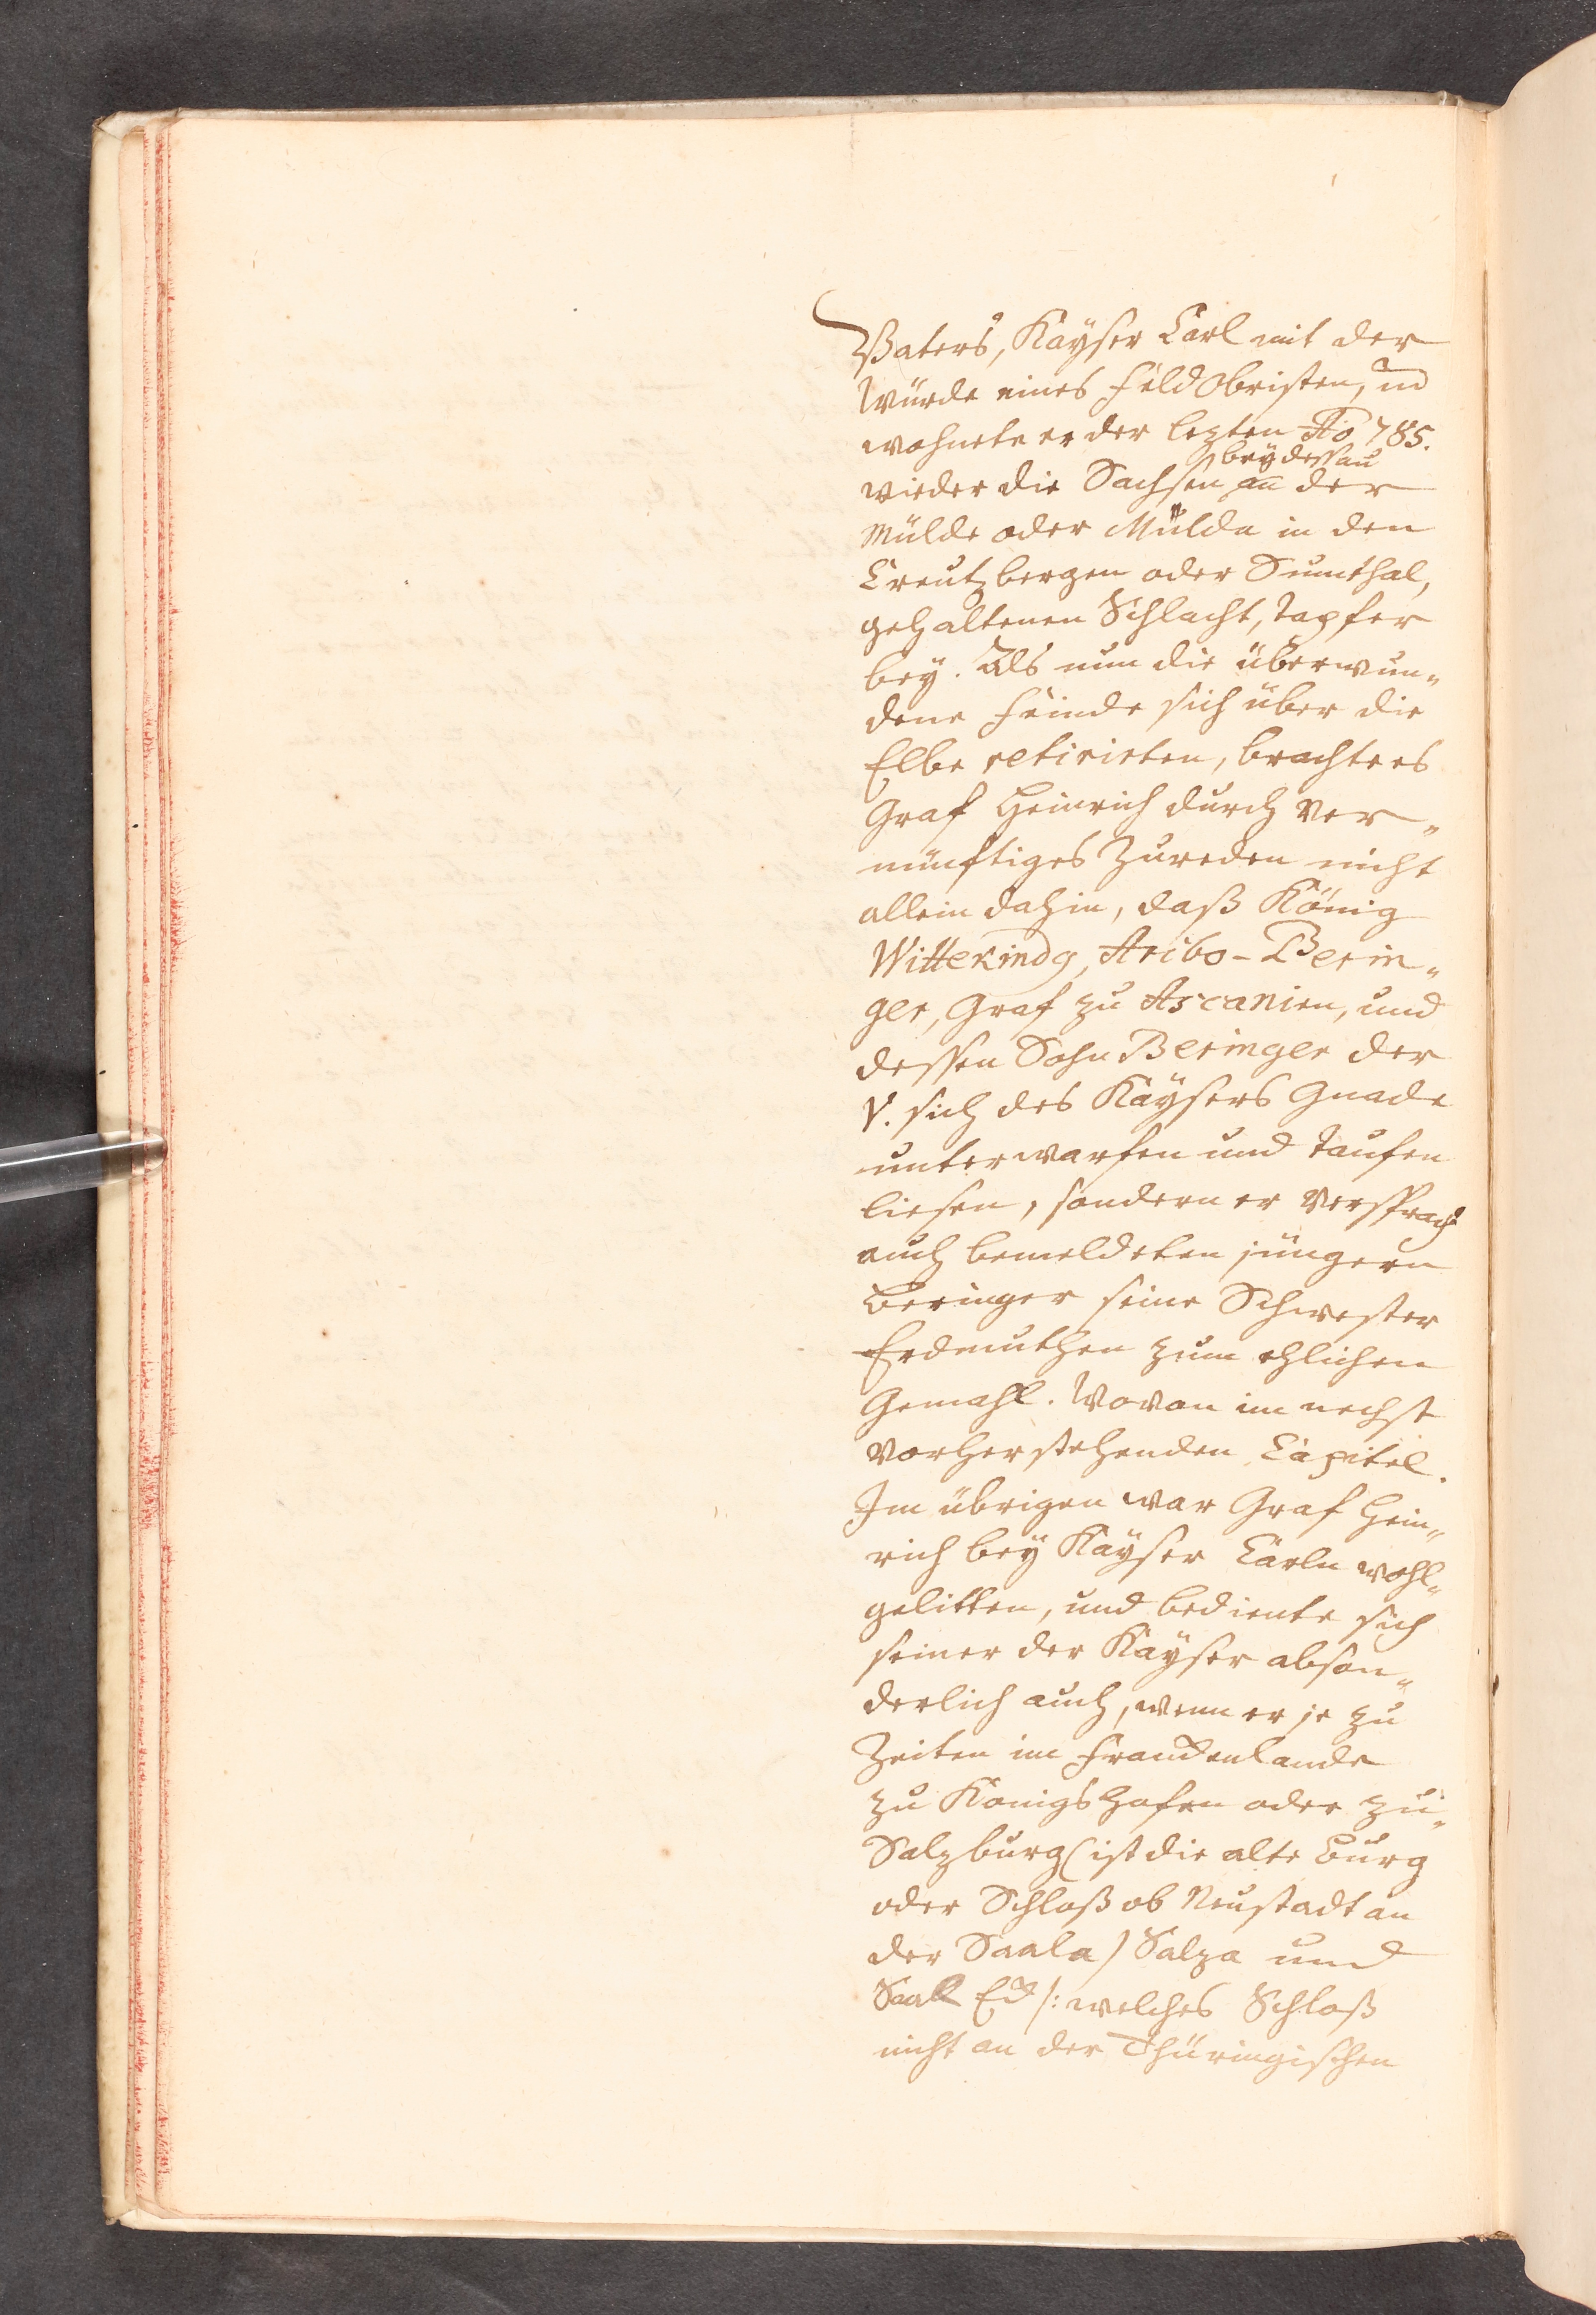 Vaters, Kayser Carl mit der
Würde eines Feld Obristen, und
wohnete er der lezten Ao. 785.
bey dessau
wieder die Sachsen an der
Mülde oder Mulda in den
Creutzbergen oder Sumthal,
gehaltenen Schlacht, tapfer
bey. Als nun die überwun„
dene Feinde sich über die
Elbe retirirten, brachte es
Graf Heinrich durch ver„
nünftiges Zureden nicht
allein dahin, daß König
Wittekindg, Aribo-Berin„
ger, Graf zu Ascanien, und
dessen Sohn Beringer der
V. sich des Kaysers Gnade
unterwarfen und taufen
liesen, sondern er versprach
auch bemeldeten jüngern
Beringer seine Schwester
Erdmuthen zum ehlichen
Gemahl. Wovon im nechst
vorherstehenden Capitel.
Im übrigen war Graf Hein„
rich bey Kayser Carln wohl„
gelitten, und bediente sich
seiner der Kayser abson„
derlich auch, wenn er je zu
Zeiten im Franckenlande
zu Konigshofen oder zu„
Salzburg (ist die alte Burg
oder Schloß ob Neustadt an
der Saala) Salza und
Saal Eck /: welches Schloß
nicht an der Thüringischen